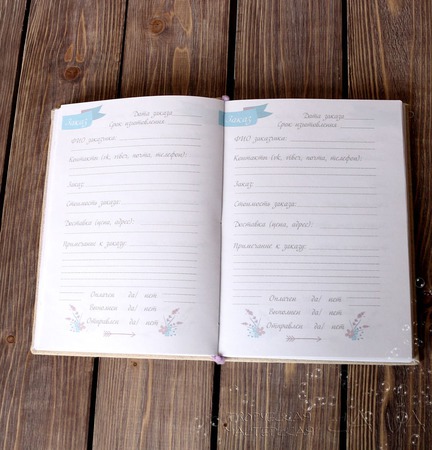 Заказ
Дата заказа
Срок изготовления
ФИО заказчика:
Контакты (vk, viber, почта, телефон):
Заказ:
Стоимость заказа:
Доставка (цена, адрес):
Примечание к заказу:
Оплачен да/ нет
Выполнен да/ нет
Отправлен да/ нет
Заказ
Дата заказа
Срок изготовления
ФИО заказчика:
Контакты (vk, viber, почта, телефон):
Заказ:
Стоимость заказа:
Доставка (цена, адрес):
Примечание к заказу:
Оплачен да/ нет
Выполнен да/ нет
Отправлен да/ нет